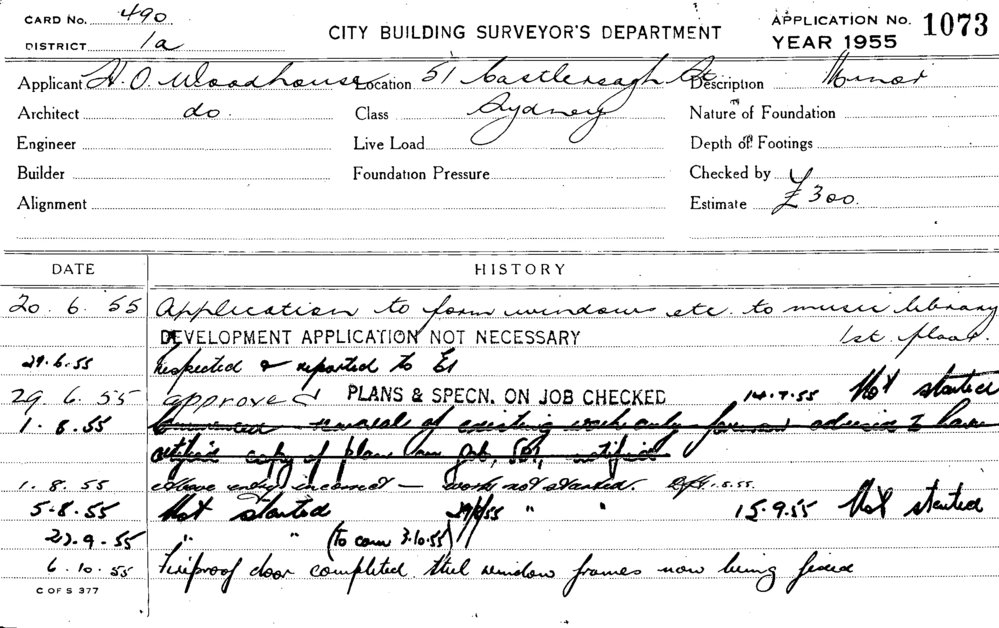 CARD No. 490
DISTRICT 1a
CITY BUILDING SURVEYOR'S DEPARTMENT
APPLICATION No. 1073
YEAR 1955
Applicant H. O. Woodhouse Location 51 Castlereagh St Description Minor
Architect do. Class Sydney Nature of Foundation
Engineer Live Load Depth of Footings
Builder Foundation Pressure Checked by
Alignment Estimate £300.
DATE HISTORY
20. 6. 55 Application to form windows etc. to music library
DEVELOPMENT APPLICATION NOT NECESSARY 1st. floor.
29.6.55 Inspected & reported to
29. 6. 55 approved PLANS & SPECN. ON JOB CHECKED 14.7.55 Not started
1. 8. 55 removal of existing work only foreman advised to have
certified copy of plan on job, notified
1. 8. 55 Above entry incorrect – work not started. 1.8.55.
5.8.55 Not started 29/8/55 " " 15.9.55 Not started
27.9.55 " " (to com 3.10.55)
6.10.55 Fireproof door completed. Steel window frames now being fixed
C OF S 377